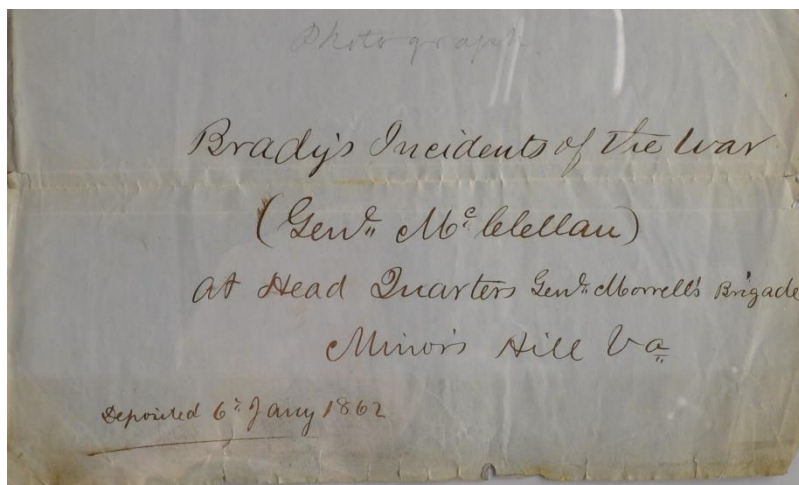 Photograph
Brady's Incidents of the War
(Genl. Mc Clellan)
at Head Quarters Genl. Morrell's Brigade
Minor's Hill Va
Deposited 6th Jany 1862